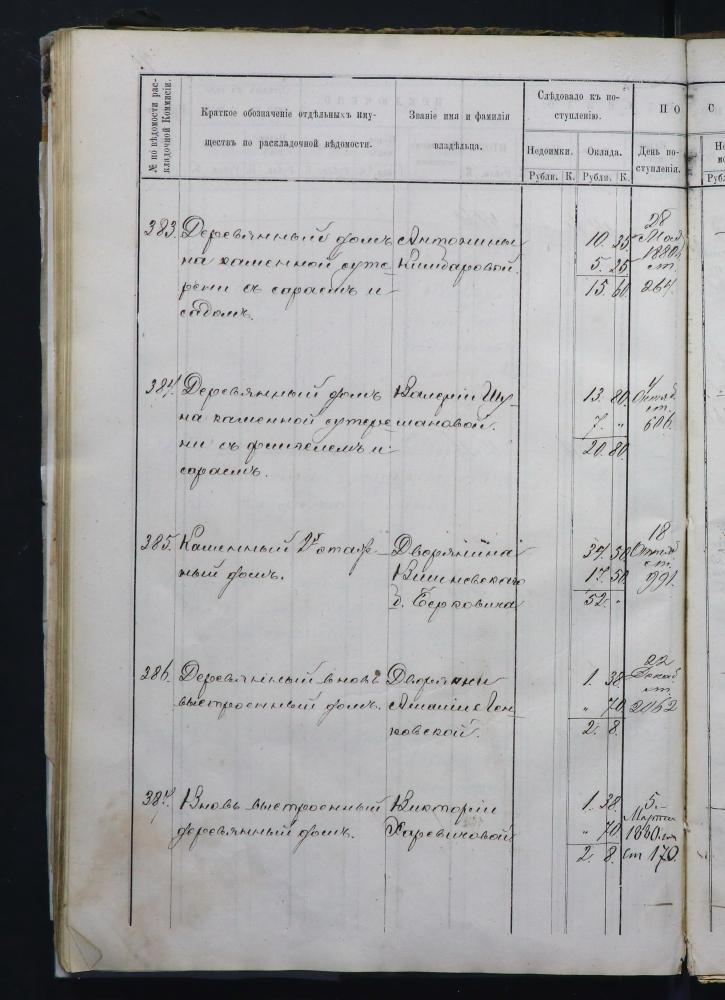 № по вѣдомости рас-
кладочной Коммисіи.
Краткое обозначеніе отдѣльныхъ иму-
ществъ по раскладочной вѣдомости.
Званіе имя и фамилія
владѣльца.
Слѣдовало къ по-
ступленію.
Недоимки. Оклада.
Рубли. К. Рубли. К.
П О С
День по-
ступленія.
Рубл.
383. Деревянный домъ Антонины 10. 35 28
на каменной суте- Май
5. 25 1880 г.
рени съ сараемъ и ст.
15. 60. 264.
садомъ.
384. Деревянный домъ Валеріи Шу- 13. 80. 4
на каменной сутере- мановой. 7. „ ст.
ни съ флигелемъ и 20. 80. 606.
сараемъ.
385. Каменный 2х этаж- Дворянина 34. 50 18
ный домъ. 17. 50 ст.
д. Берковича 52. „ 991.
386. Деревянный вновь Дворянки 1. 38. 22
выстроенный домъ. „ 70 Декаб.
ковской. 2. 8. ст. 2062
387. Вновь выстроенный Викторіи 1. 38. 5.
деревянный домъ. „ 70 Марта
2. 8. 1880
ст 170.